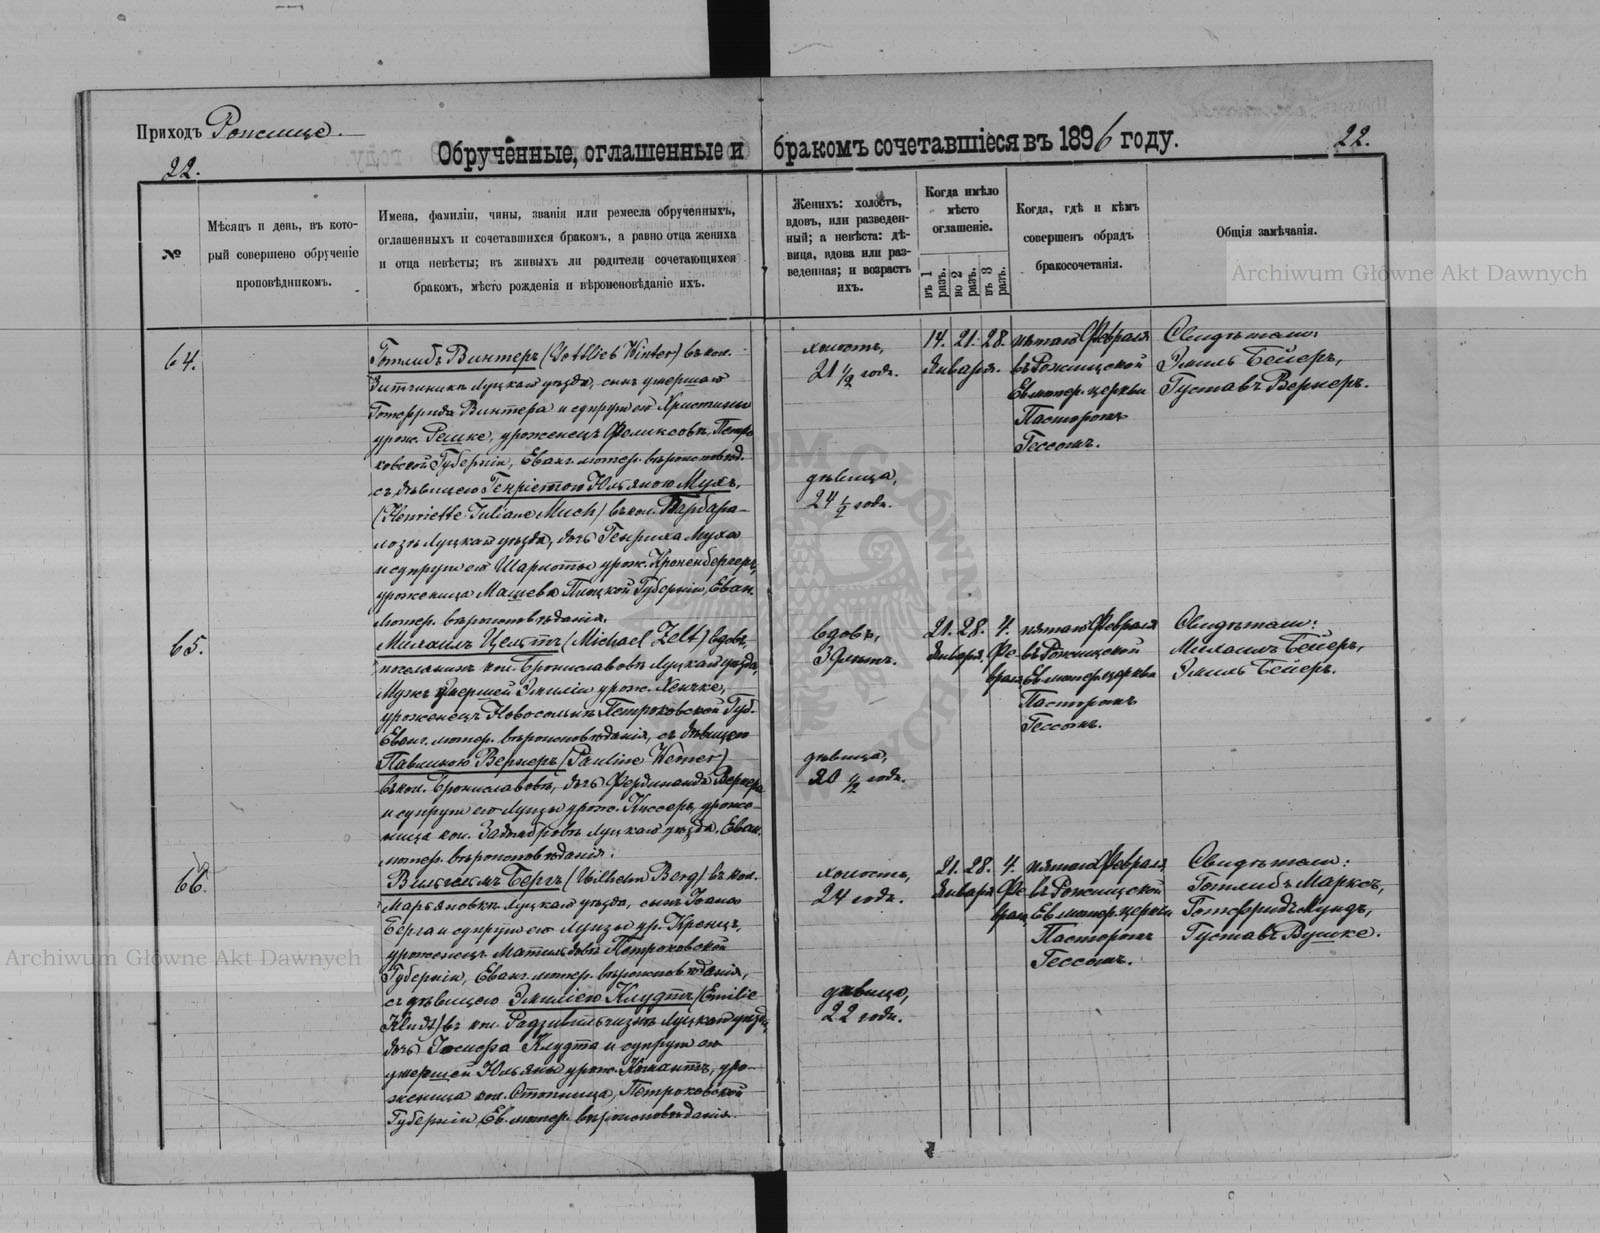 Приходъ Рожище.
22.
Обрученные, оглашенные и бракомъ сочетавшіеся въ 1896 году.
22.
№
Мѣсяцъ и день, въ кото-
рый совершено обрученіе
проповѣдникомъ.
Имена, фамиліи, чины, званія или ремесла обрученныхъ,
оглашенныхъ и сочетавшихся бракомъ, а равно отца жениха
и отца невѣсты; въ живыхъ ли родители сочетающихся
бракомъ, мѣсто рожденія и вѣроисповѣданіе ихъ.
Женихъ: холостъ,
вдовъ, или разведен-
ный; а невѣста: дѣ-
вица, вдова или раз-
веденная; и возрастъ
ихъ.
Когда имѣло
мѣсто
оглашеніе.
въ 1 разъ.
во 2 разъ.
въ 3 разъ.
Когда, гдѣ и кѣмъ
совершенъ обрядъ
бракосочетанія.
Общія замѣчанія.
Archiwum Główne Akt Dawnych
64.
Готлибъ Винтеръ (Gottlieb Winter) въ кол.
Луцкаго уѣзда, сынъ умершаго
Готфрида Винтера и супруги его Христины
урож. Решке, уроженецъ Феликсовъ, Петро-
ковской Губерніи, Еванг. лютер. вѣроисповѣд.
съ дѣвицею Генріетою Юльяною Мухъ,
(Henriette Juliane Much) въ кол. Барбара-
Луцкаго уѣзда, дочь Генриха Муха
и супруги его Шарлоты урож. Кроненбергеръ,
уроженица Машева Плоцкой Губерніи, Еван.
лютер. вѣроисповѣданія.
холостъ,
21 1/2 годъ.
дѣвица,
24 1/2 годъ.
14. 21. 28.
Января.
пятаго Февраля
въ Рожищской
Ев. лютер. церкви
Пасторомъ
Гессомъ.
Свидѣтели:
Эмиль Бейеръ,
Густавъ Вернеръ.
65.
Михаилъ Цельтъ (Michael Zelt) вдовъ,
поселянинъ кол. Брониславовъ Луцкаго уѣзда,
Мужъ умершей Эмиліи урож. Хенчке,
уроженецъ Петроковской Губ.
Еванг. лютер. вѣроисповѣданія, съ дѣвицею
Павлиною Вернеръ (Pauline Werner)
въ кол. Брониславовъ, дочь Фердинанда Вернера
и супруги его Луизы урож. Киссеръ, уроже-
ница кол. Луцкаго уѣзда, Еван.
лютер. вѣроисповѣданія.
вдовъ,
39 лѣтъ.
дѣвица,
20 1/2 годъ.
21. 28. 4.
Января. Фе-
враля
пятаго Февраля
въ Рожищской
Ев. лютер. церкви
Пасторомъ
Гессомъ.
Свидѣтели:
Михаилъ Бейеръ,
Эмиль Бейеръ.
66.
Вильгельмъ Бергъ (Wilhelm Berg) въ кол.
Марьяновкѣ Луцкаго уѣзда, сынъ Іоанна
Берга и супруги его Луизы ур. Кренцъ,
уроженецъ Матильдовъ Петроковской
Губерніи, Еванг. лютер. вѣроисповѣданія,
съ дѣвицею Эмиліею Клудтъ (Emilie
Kludt) въ кол. Луцкаго уѣзда,
дочь Іосифа Клудта и супруги его
умершей Юльяны урож. уро-
женица кол. Петроковской
Губерніи Ев. лютер. вѣроисповѣданія.
холостъ,
24 годъ.
дѣвица,
22 годъ.
21. 28. 4.
Января Фе-
враля
пятаго Февраля
въ Рожищской
Ев. лютер. церкви
Пасторомъ
Гессомъ.
Свидѣтели:
Готлибъ Марксъ,
Готфридъ Кундъ,
Густавъ Вушке.
Archiwum Główne Akt Dawnych